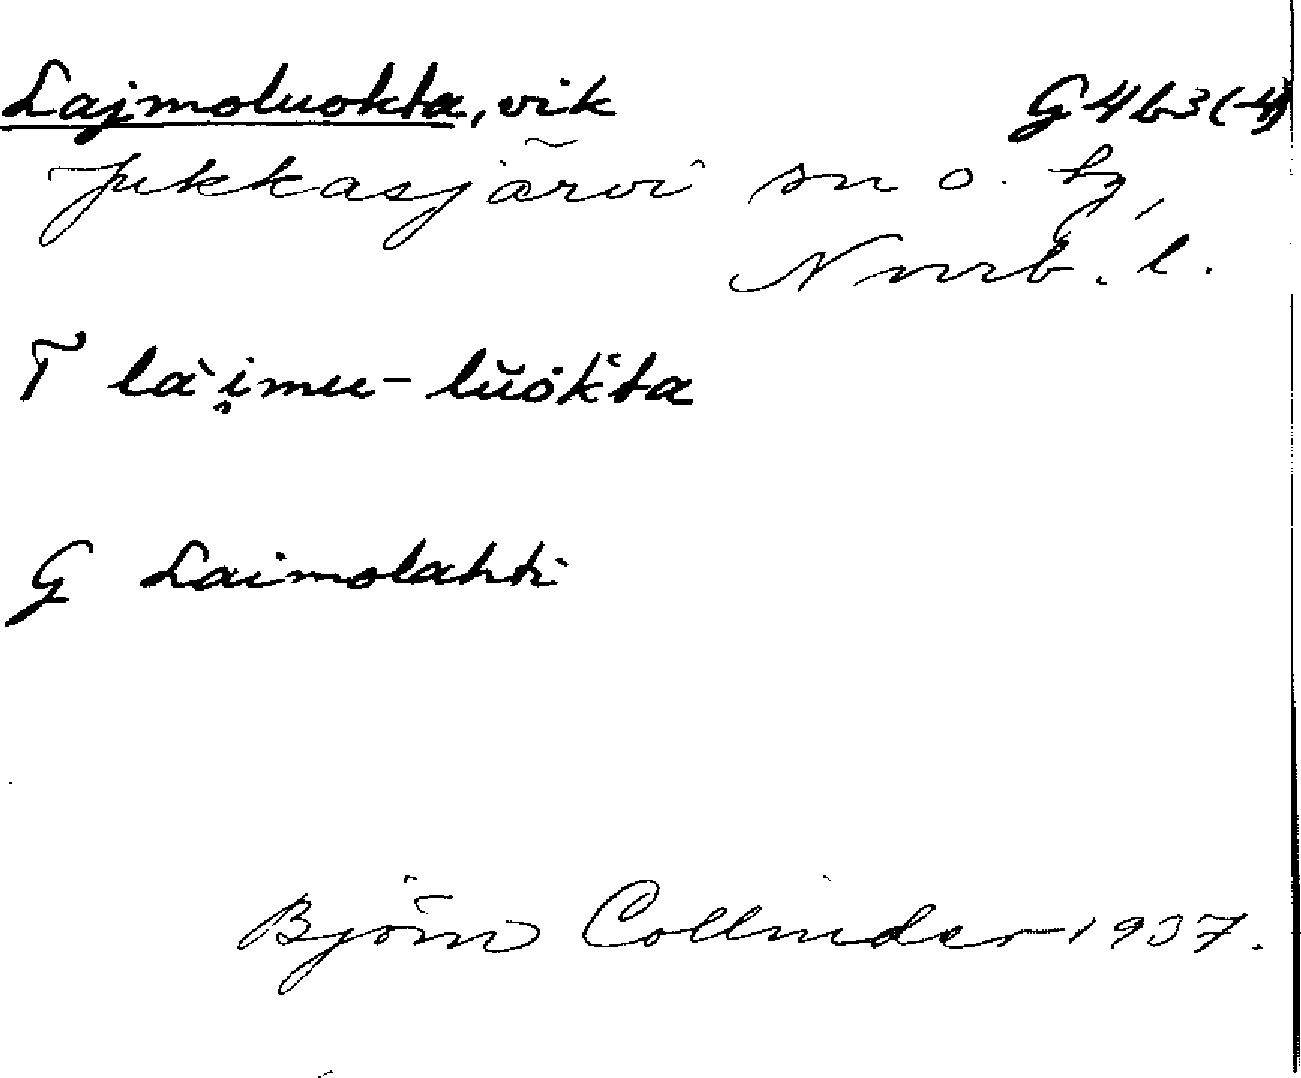 Lajmoluokta, vik G4b3(-4)
Jukkasjärvi sn o. tg,
Norrb. l.
T là i̯mu-lŭòk̀ta
G Laimolahti
Björn Collinder 1937.